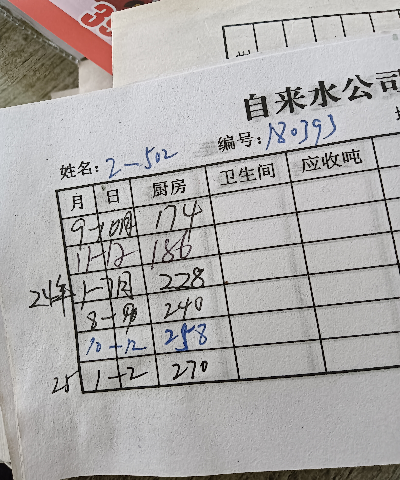 39
自来水公司
姓名: 2-502 编号: 180393
月 日 厨房 卫生间 应收吨
9-10月 174
11-12 186
24年 1-7月 228
8-9 240
10-12 258
25 1-2 270